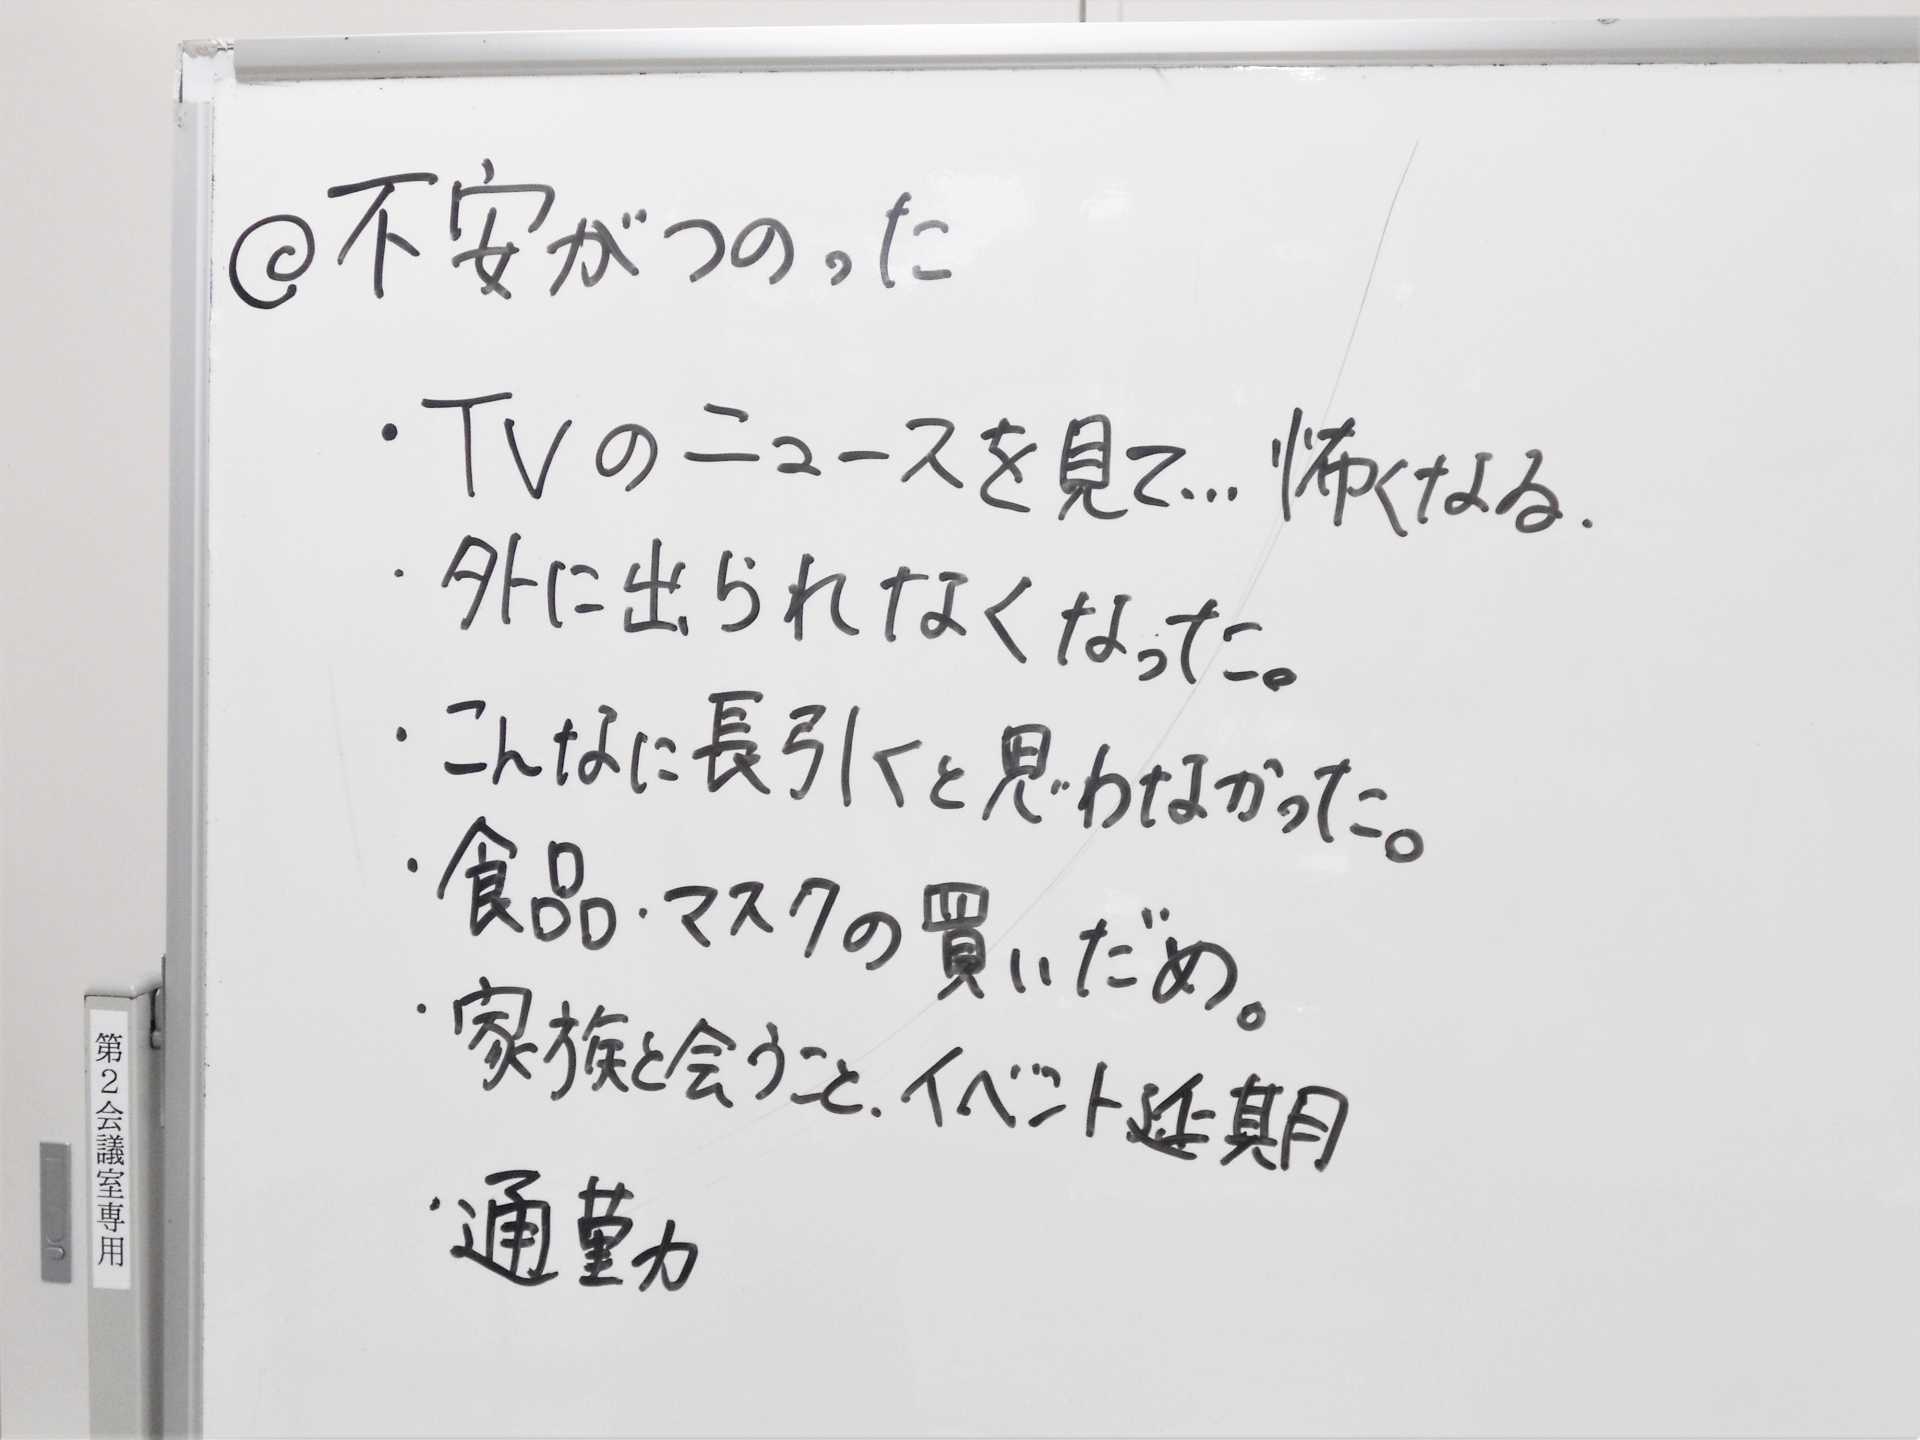 @不安がつのった
・TVのニュースを見て... 怖くなる.
・外に出られなくなった。
・こんなに長引くと思わなかった。
・食品・マスクの買いだめ。
・家族と会うこと.イベント延期
・通勤
第2会議室専用